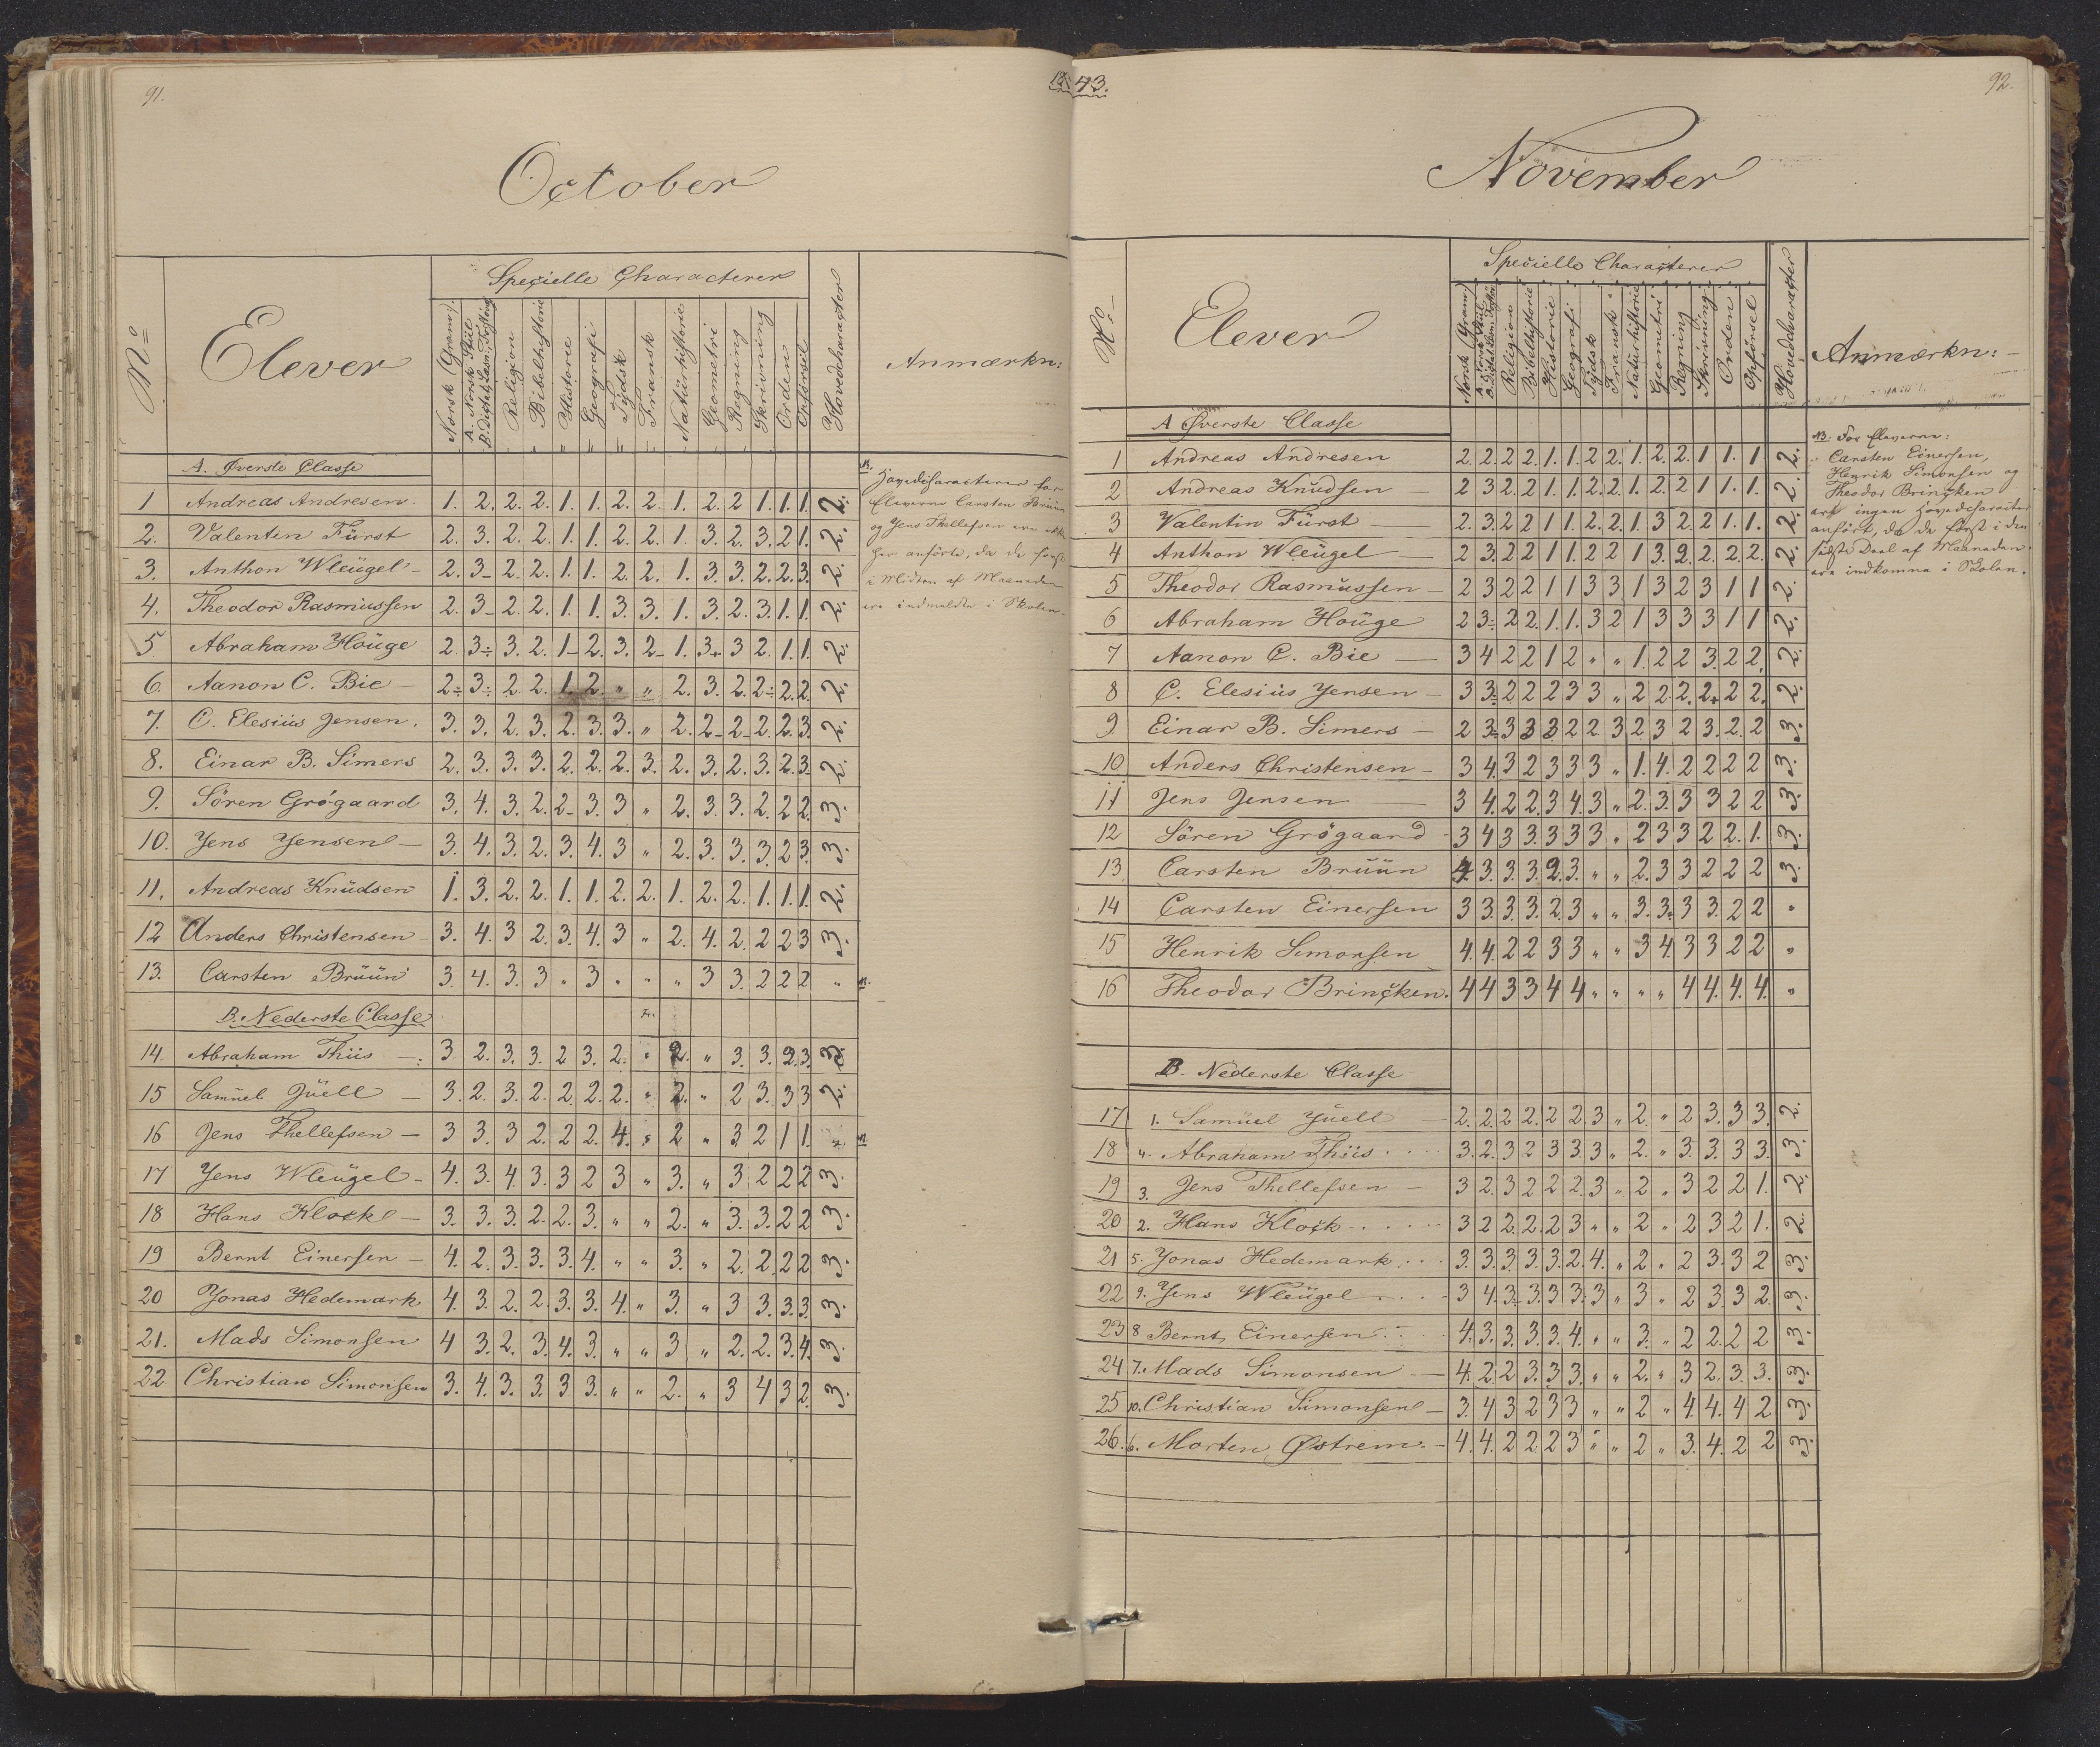 91.
1843.
October
No
Elever
Specielle Characterer
Norsk (Gram:).
A. Norsk Stiil
B. Dictat, Læsn:,
Religion
Bibelhistorie
Historie
Geografi
Tydsk
Fransk
Naturhistorie
Geometri
Regning
Skrivning
Orden
Opførsel
Hovedcharacter
Anmærkn:
A. Øverste Classe
1 Andreas Andresen. 1. 2. 2. 2. 1. 1. 2. 2. 1. 2. 2 1. 1. 1. 2.
2. Valentin Fürst 2. 3. 2. 2. 1. 1. 2. 2. 1. 3. 2. 3. 2 1. 2.
3. Anthon Wleügel - 2. 3- 2. 2. 1. 1. 2. 2. 1. 3. 3. 2. 2. 3. 2.
4. Theodor Rasmüssen 2. 3- 2. 2. 1. 1. 3. 3. 1. 3. 2. 3. 1. 1. 2.
5 Abraham Houge 2. 3÷ 3. 2. 1- 2. 3. 2- 1. 3+ 3 2. 1. 1. 2.
6. Aanon C. Bie - 2÷ 3÷ 2. 2. 1. 2. " " 2. 3. 2. 2÷ 2. 2. 2.
7. C. Elesiüs Jensen. 3. 3. 2. 3. 2. 3. 3. " 2. 2- 2- 2. 2. 3. 2.
8. Einar B. Simers 2. 3. 3. 3. 2. 2. 2. 3. 2. 3. 2. 3. 2. 3. 2.
9. Sören Grögaard 3. 4. 3. 2. 2- 3. 3 " 2. 3. 3. 2. 2. 2. 3.
10. Jens Jensen - 3. 4. 3. 2. 3. 4. 3 " 2. 3. 3. 3. 2 3. 3.
11. Andreas Knüdsen 1. 3. 2. 2. 1. 1. 2. 2. 1. 2. 2. 1. 1. 1. 2.
12 Anders Christensen 3. 4. 3 2. 3. 4. 3 " 2. 4. 2. 2 2 3 3.
13. Carsten Brüün 3. 4. 3. 3 " 3 " " " 3 3. 2 2 2 "
B. Nederste Classe
14 Abraham Thiis - 3 2. 3. 3. 2 3. 2. " 2. " 3. 3. 2. 3. 3.
15 Samüel Jüell - 3. 2. 3. 2. 2. 2. 2. " 2. " 2 3. 3 3 2.
16 Jens Thellefsen - 3 3. 3 2. 2 2. 4. " 2 " 3. 2 1 1. "
17 Jens Wleügel - 4. 3. 4. 3. 3 2 3 " 3. " 3 2 2 2 3.
18 Hans Klock - 3. 3. 3. 2. 2. 3. " " 2. " 3. 3. 2 2 3.
19 Bernt Einersen - 4. 2. 3. 3. 3. 4. " " 3. " 2. 2. 2 2 3.
20 Jonas Hedemark 4. 3. 2. 2. 3. 3. 4. " 3. " 3 3. 3. 3. 3.
21. Mads Simonsen 4 3. 2. 3. 4. 3. " " 3 " 2. 2. 3. 4. 3.
22 Christian Simonsen 3. 4. 3. 3. 3 3. " " 2. " 3 4 3 2. 3.
Hovedcharacterer for
Eleverne Carsten Brüün
og Jens Thellefsen ere ikke
her anførte, da de først
i Midten af Maaneden
ere indmeldte i Skolen.
92.
November
No
Elever
Specielle Characterer
Norsk (Gram:)
A. Norsk Stiil
B. Dictat, Læsn:,
Religion
Bibelhistorie
Historie
Geografi
Tydsk
Fransk
Naturhistorie
Geometri
Regning
Skrivning
Orden
Opførsel
Hovedcharacter
Anmærkn:
A Øverste Classe
1 Andreas Andresen 2. 2. 2. 2. 1. 1. 2 2. 1. 2. 2. 1 1. 1 2.
2 Andreas Knüdsen - 2 3 2. 2 1. 1. 2. 2. 1. 2. 2 1 1. 1. 2.
3 Valentin Fürst - 2. 3. 2 2 1 1. 2. 2. 1. 3 2. 2 1. 1. 2.
4 Anthon Wleügel - 2 3. 2 2 1 1. 2 2 1 3. 2. 2. 2. 2. 2.
5 Theodor Rasmüssen - 2 3 2 2 1 1 3 3 1 3 2 3 1 1 2.
6 Abraham Houge 2 3÷ 2 2. 1. 1. 3 2 1 3 3 3 1 1 2.
7 Aanon C. Bie - 3 4 2 2 1 2 " " 1. 2 2 3. 2 2. 2.
8 C. Elesiüs Jensen - 3 3÷ 2 2 2 3 3 " 2 2 2. 2+ 2 2. 2.
9 Einar B. Simers - 2 3÷ 3 3 3 2 2 3 2 3 2 3. 2. 2 3.
10 Anders Christensen - 3 4. 3 2 3 3 3 " 1. 4. 2 2 2 2 3.
11 Jens Jensen - 3 4. 2 2. 3 4. 3 " 2. 3. 3 3 2 2 3.
12 Sören Grögaard - 3 4 3 3. 3 3 3. " 2 3 3 2 2. 1. 3.
13 Carsten Brüün 4. 3. 3. 3. 2. 3. " " 2. 3 3 2 2 2 3.
14 Carsten Einersen 3 3. 3. 3. 2. 3 " " 3. 3. 3 3. 2 2 "
15 Henrik Simonsen 4. 4. 2 2 3 3 " " 3 4. 3 3 2 2 "
16 Theodor Brincken. 4 4 3 3 4 4 " " " " 4 4. 4. 4. "
B. Nederste Classe
17 1. Samüel Jüell - 2. 2. 2. 2. 2 2. 3 " 2. " 2 3. 3 3. 2.
18 4. Abraham Thiis . . . . 3. 2. 3 2 3 3. 3 " 2. " 3. 3. 3 3. 3.
19 3. Jens Thellefsen - 3 2. 3 2 2 2. 3 " 2 " 3 2 2 1. 2.
20 2. Hans Klock . . . . 3 2 2. 2. 2 3 " " 2 " 2 3 2 1. 2.
21 5. Jonas Hedemark . . . 3. 3. 3. 3. 3. 2. 4. " 2 " 2 3. 3 2 3.
22 9. Jens Wleügel . . . . 3 4. 3. 3. 3 3. 3 " 3 " 2 3 3 2. 3.
23 8 Bernt Einersen . . . 4. 3. 3. 3. 3. 4. " " 3. " 2 2. 2 2 3.
24 7. Mads Simonsen - 4. 2 2 3. 3 3. " " 2. " 3 2. 3. 3. 3.
25 10. Christian Simonsen - 3. 4 3 2 3 3 " " 2 " 4. 4. 4 2 3.
26. 6. Morten Østrem. - 4. 4. 2 2. 2 3 " " 2 " 3. 4. 2 2 3.
NB. For Eleverne:
Carsten Einersen,
Henrik Simonsen og
Theodor Brincken
ere ingen Hovedcharacter
anført, da de først i den
sidste Deel af Maaneden
ere indkomne i Skolen.